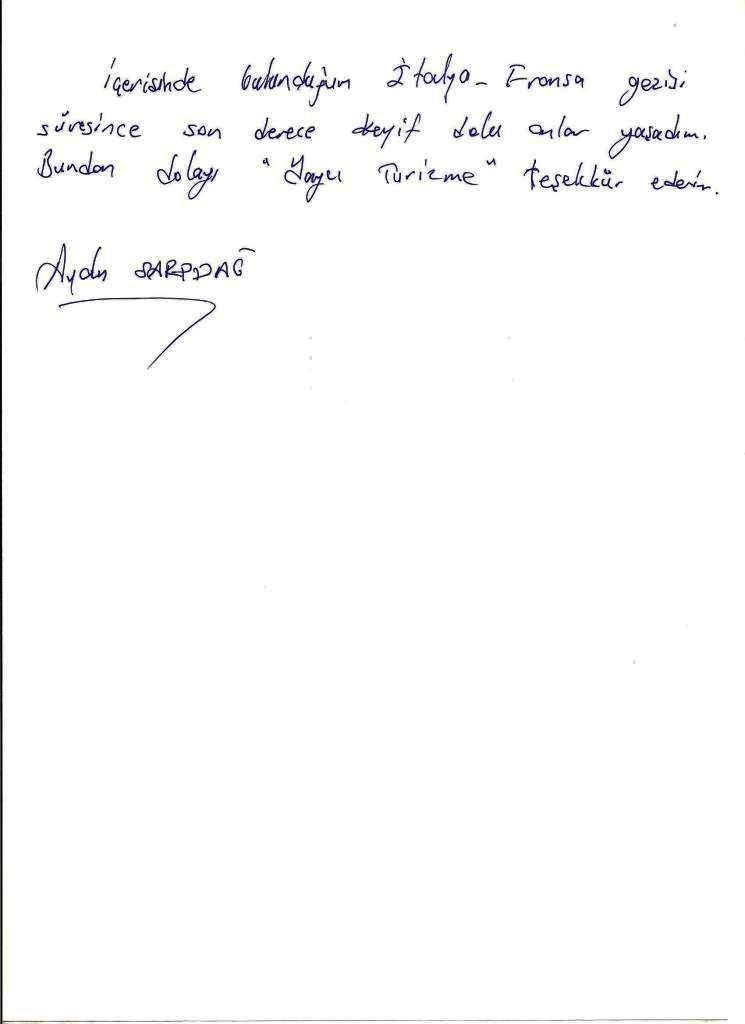 İçerisinde bulunduğum İtalya - Fransa gezisi
süresince son derece keyif dolu anlar yaşadım.
Bundan dolayı " Turizme" teşekkür ederim.
Aydın SARPDAĞ